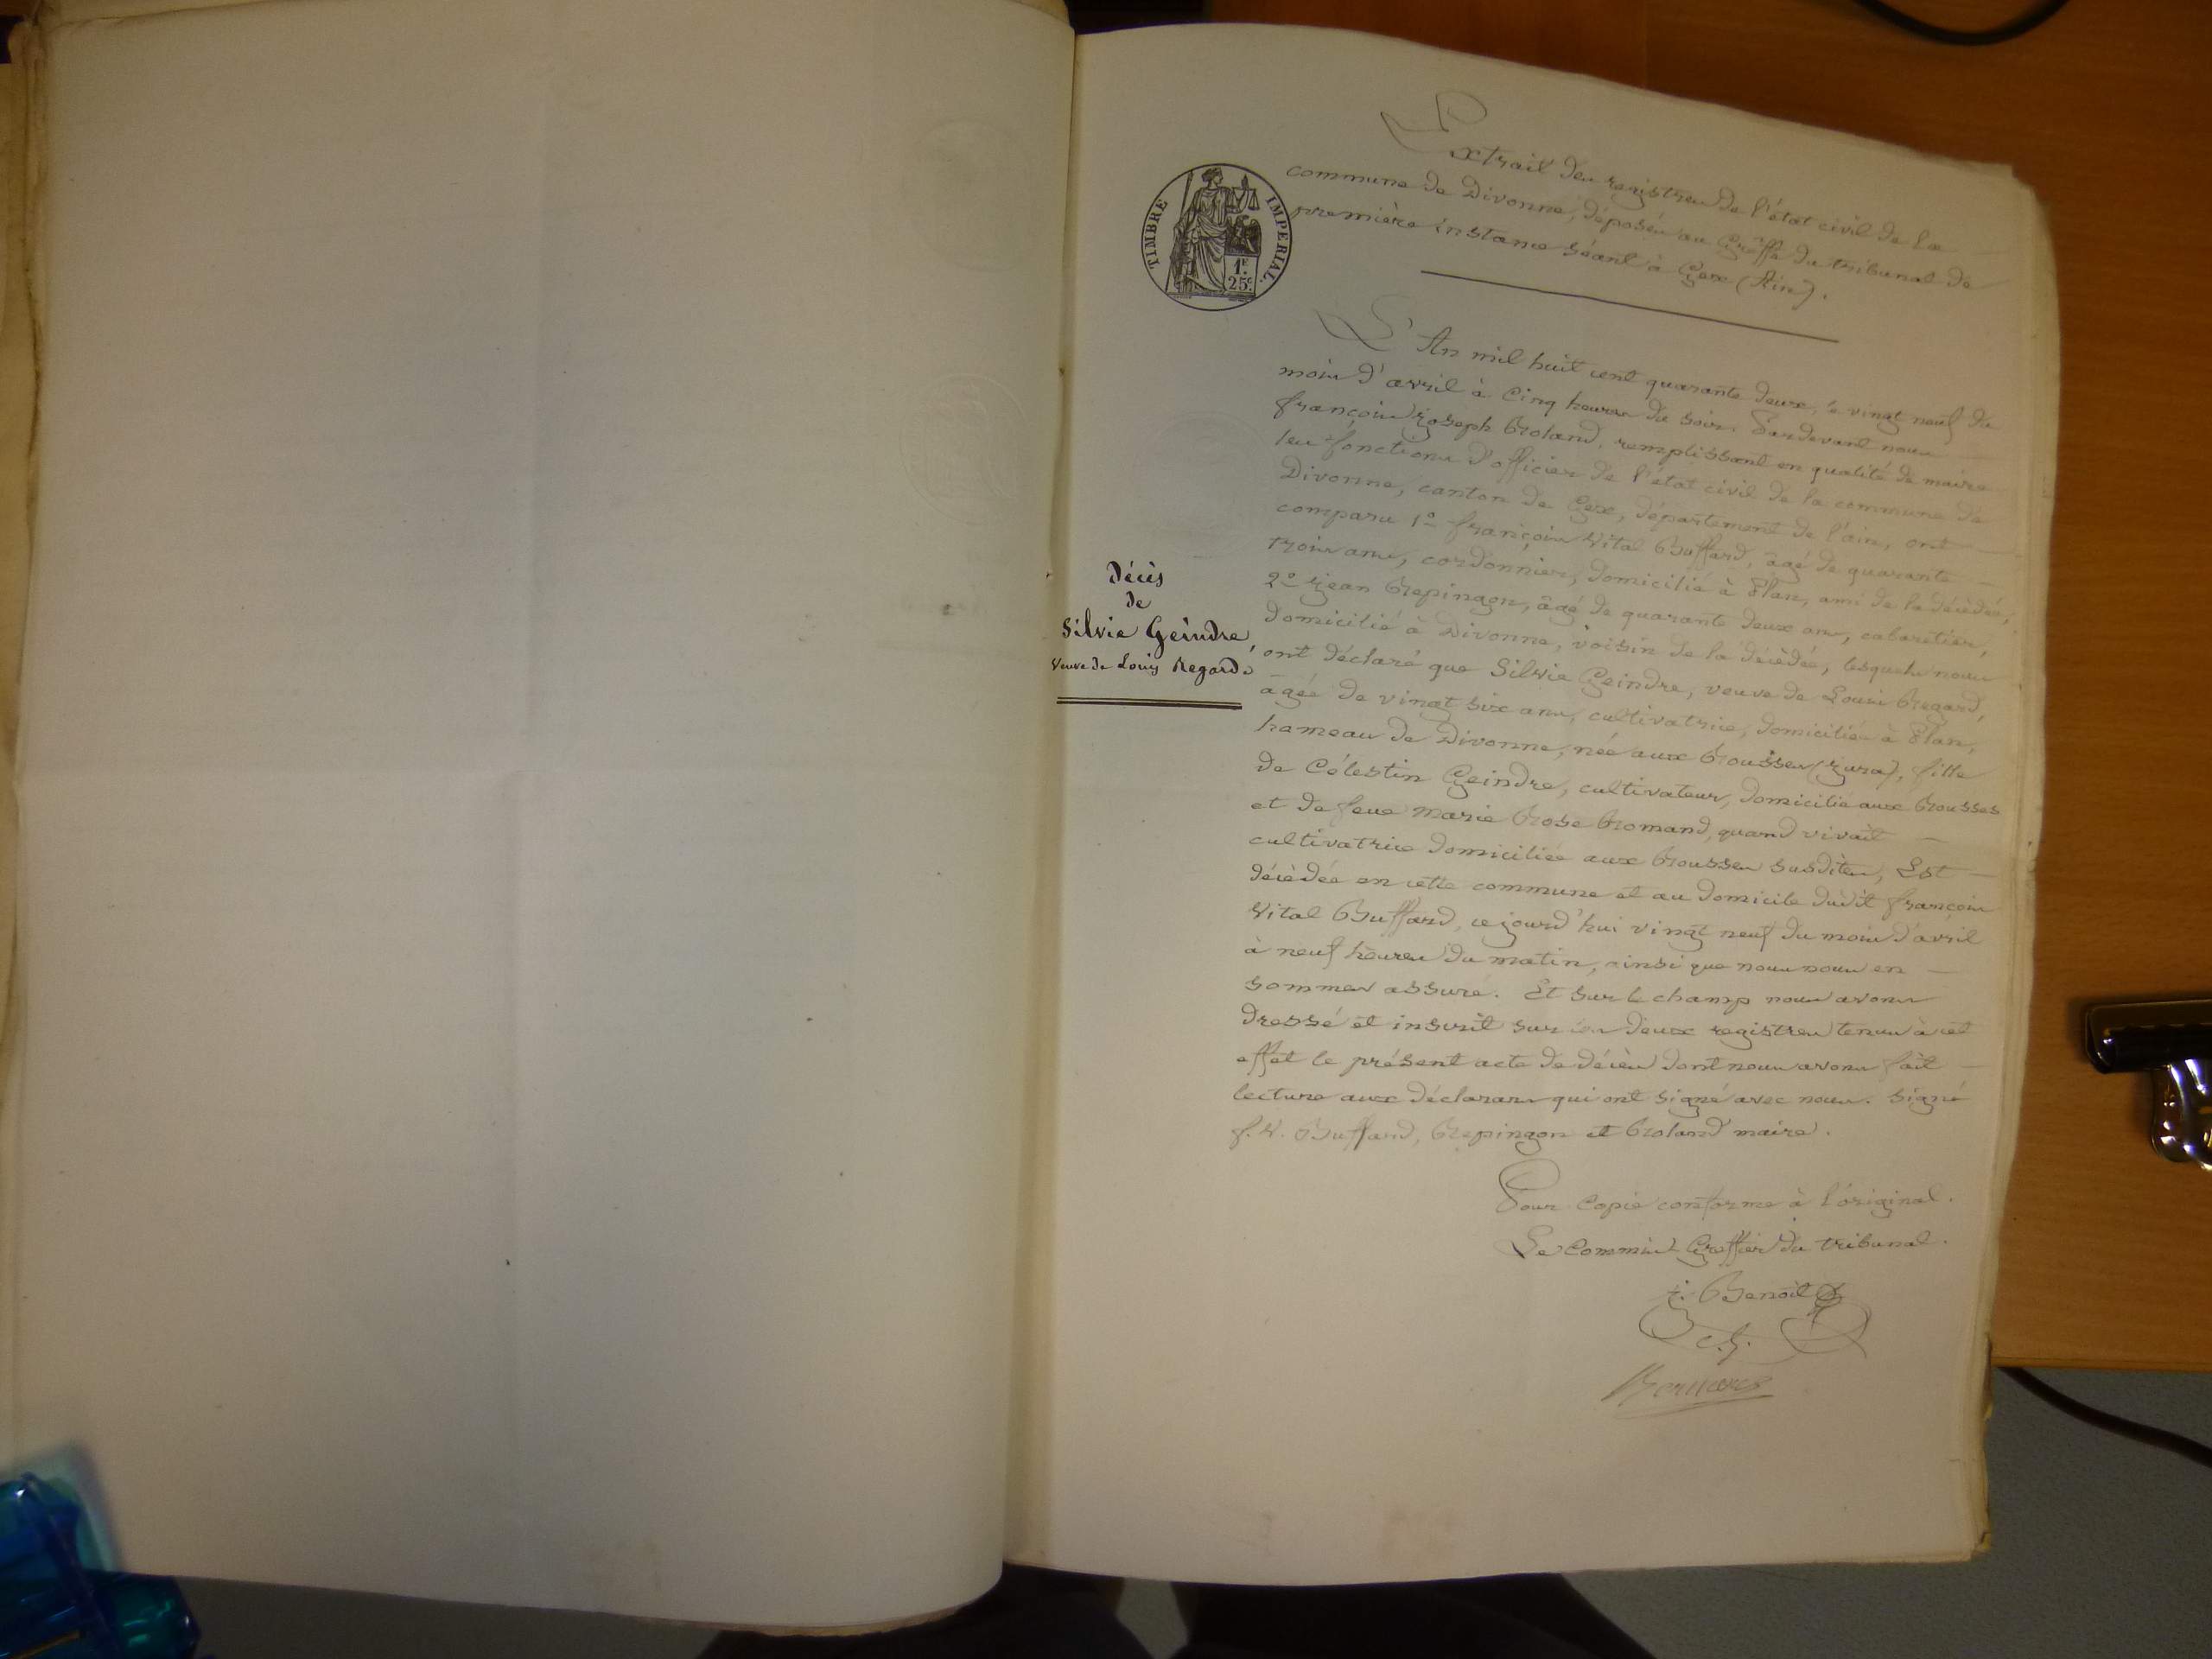 Extrait des registres de l'état civil de la
commune de Divonne, déposés au Greffe du tribunal de
première instance séant à Gex (Ain).
TIMBRE IMPERIAL
1F.
25c
L'An mil huit cent quarante deux, le vingt neuf du
mois d'avril à Cinq heures du soir. Pardevant nous
françois Joseph Roland, remplissant en qualité de maire
les fonctions d'officier de l'état civil de la commune de
Divonne, canton de Gex, département de l'ain, ont
comparu 1° françois Vital Buffard, âgé de quarante
trois ans, cordonnier, domicilié à Plan, ami de la décédée,
2° Jean Repingon, âgé de quarante deux ans, cabaretier,
domicilié à Divonne, voisin de la décédée, lesquels nous
ont déclaré que Silvie Geindre, veuve de Louis Regard,
âgée de vingt six ans, cultivatrice, domiciliée à Plan,
hameau de Divonne, née aux Rousses (Jura), fille
de Célestin Geindre, cultivateur, domicilié aux Rousses
et de feue Marie Rose Romand, quand vivait
cultivatrice domiciliée aux Rousses susdites, Est
décédée en cette commune et au domicile dudit françois
Vital Buffard, cejourd'hui vingt neuf du mois d'avril
à neuf heures du matin, ainsi que nous nous en
sommes assuré. Et sur le champ nous avons
dressé et inscrit sur les deux registres tenus à cet
effet le présent acte de décès dont nous avons fait
lecture aux déclarans qui ont signé avec nous. Signé
f. V. Buffard, Repingon et Roland maire.
Décès
de
Silvie Geindre,
Veuve de Louis Regard.
Pour Copie conforme à l'original.
Le Commis Greffier du tribunal.
Benoit
c. g.